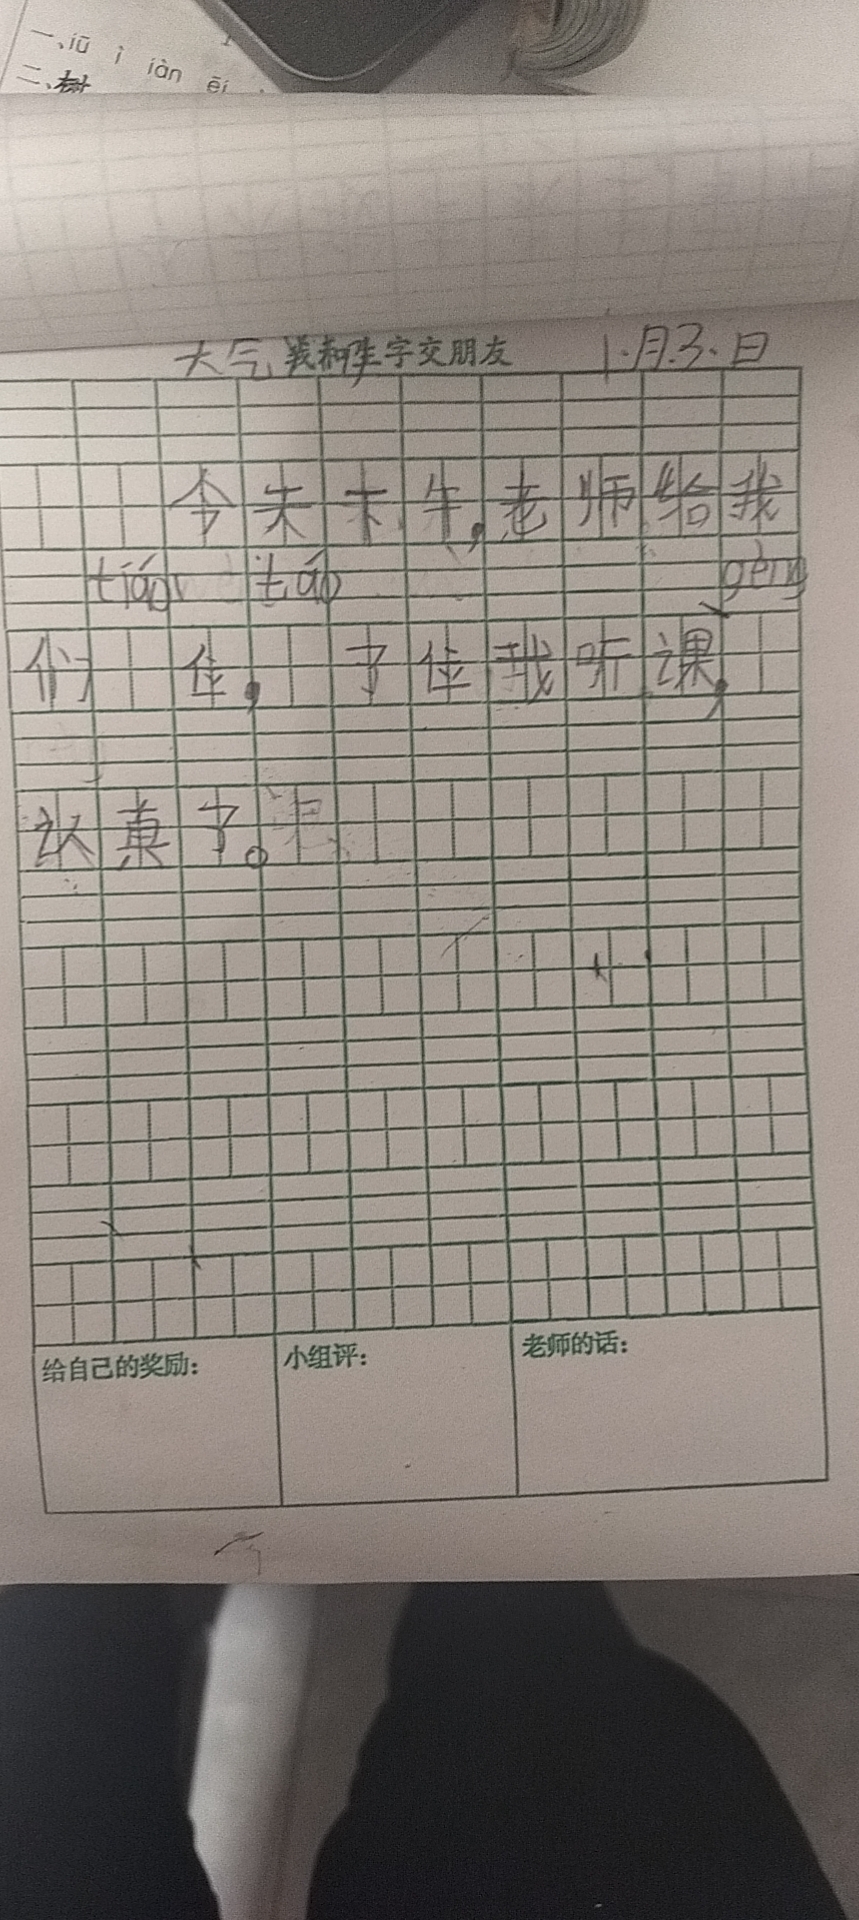 一、iū ì iàn ēi
二、树
大气 我和生字交朋友 1.月3.日
今天未午,老师给我
tiáo táo gèng
们 佳, 了佳我听课,
认真了。
给自己的奖励: 小组评: 老师的话: